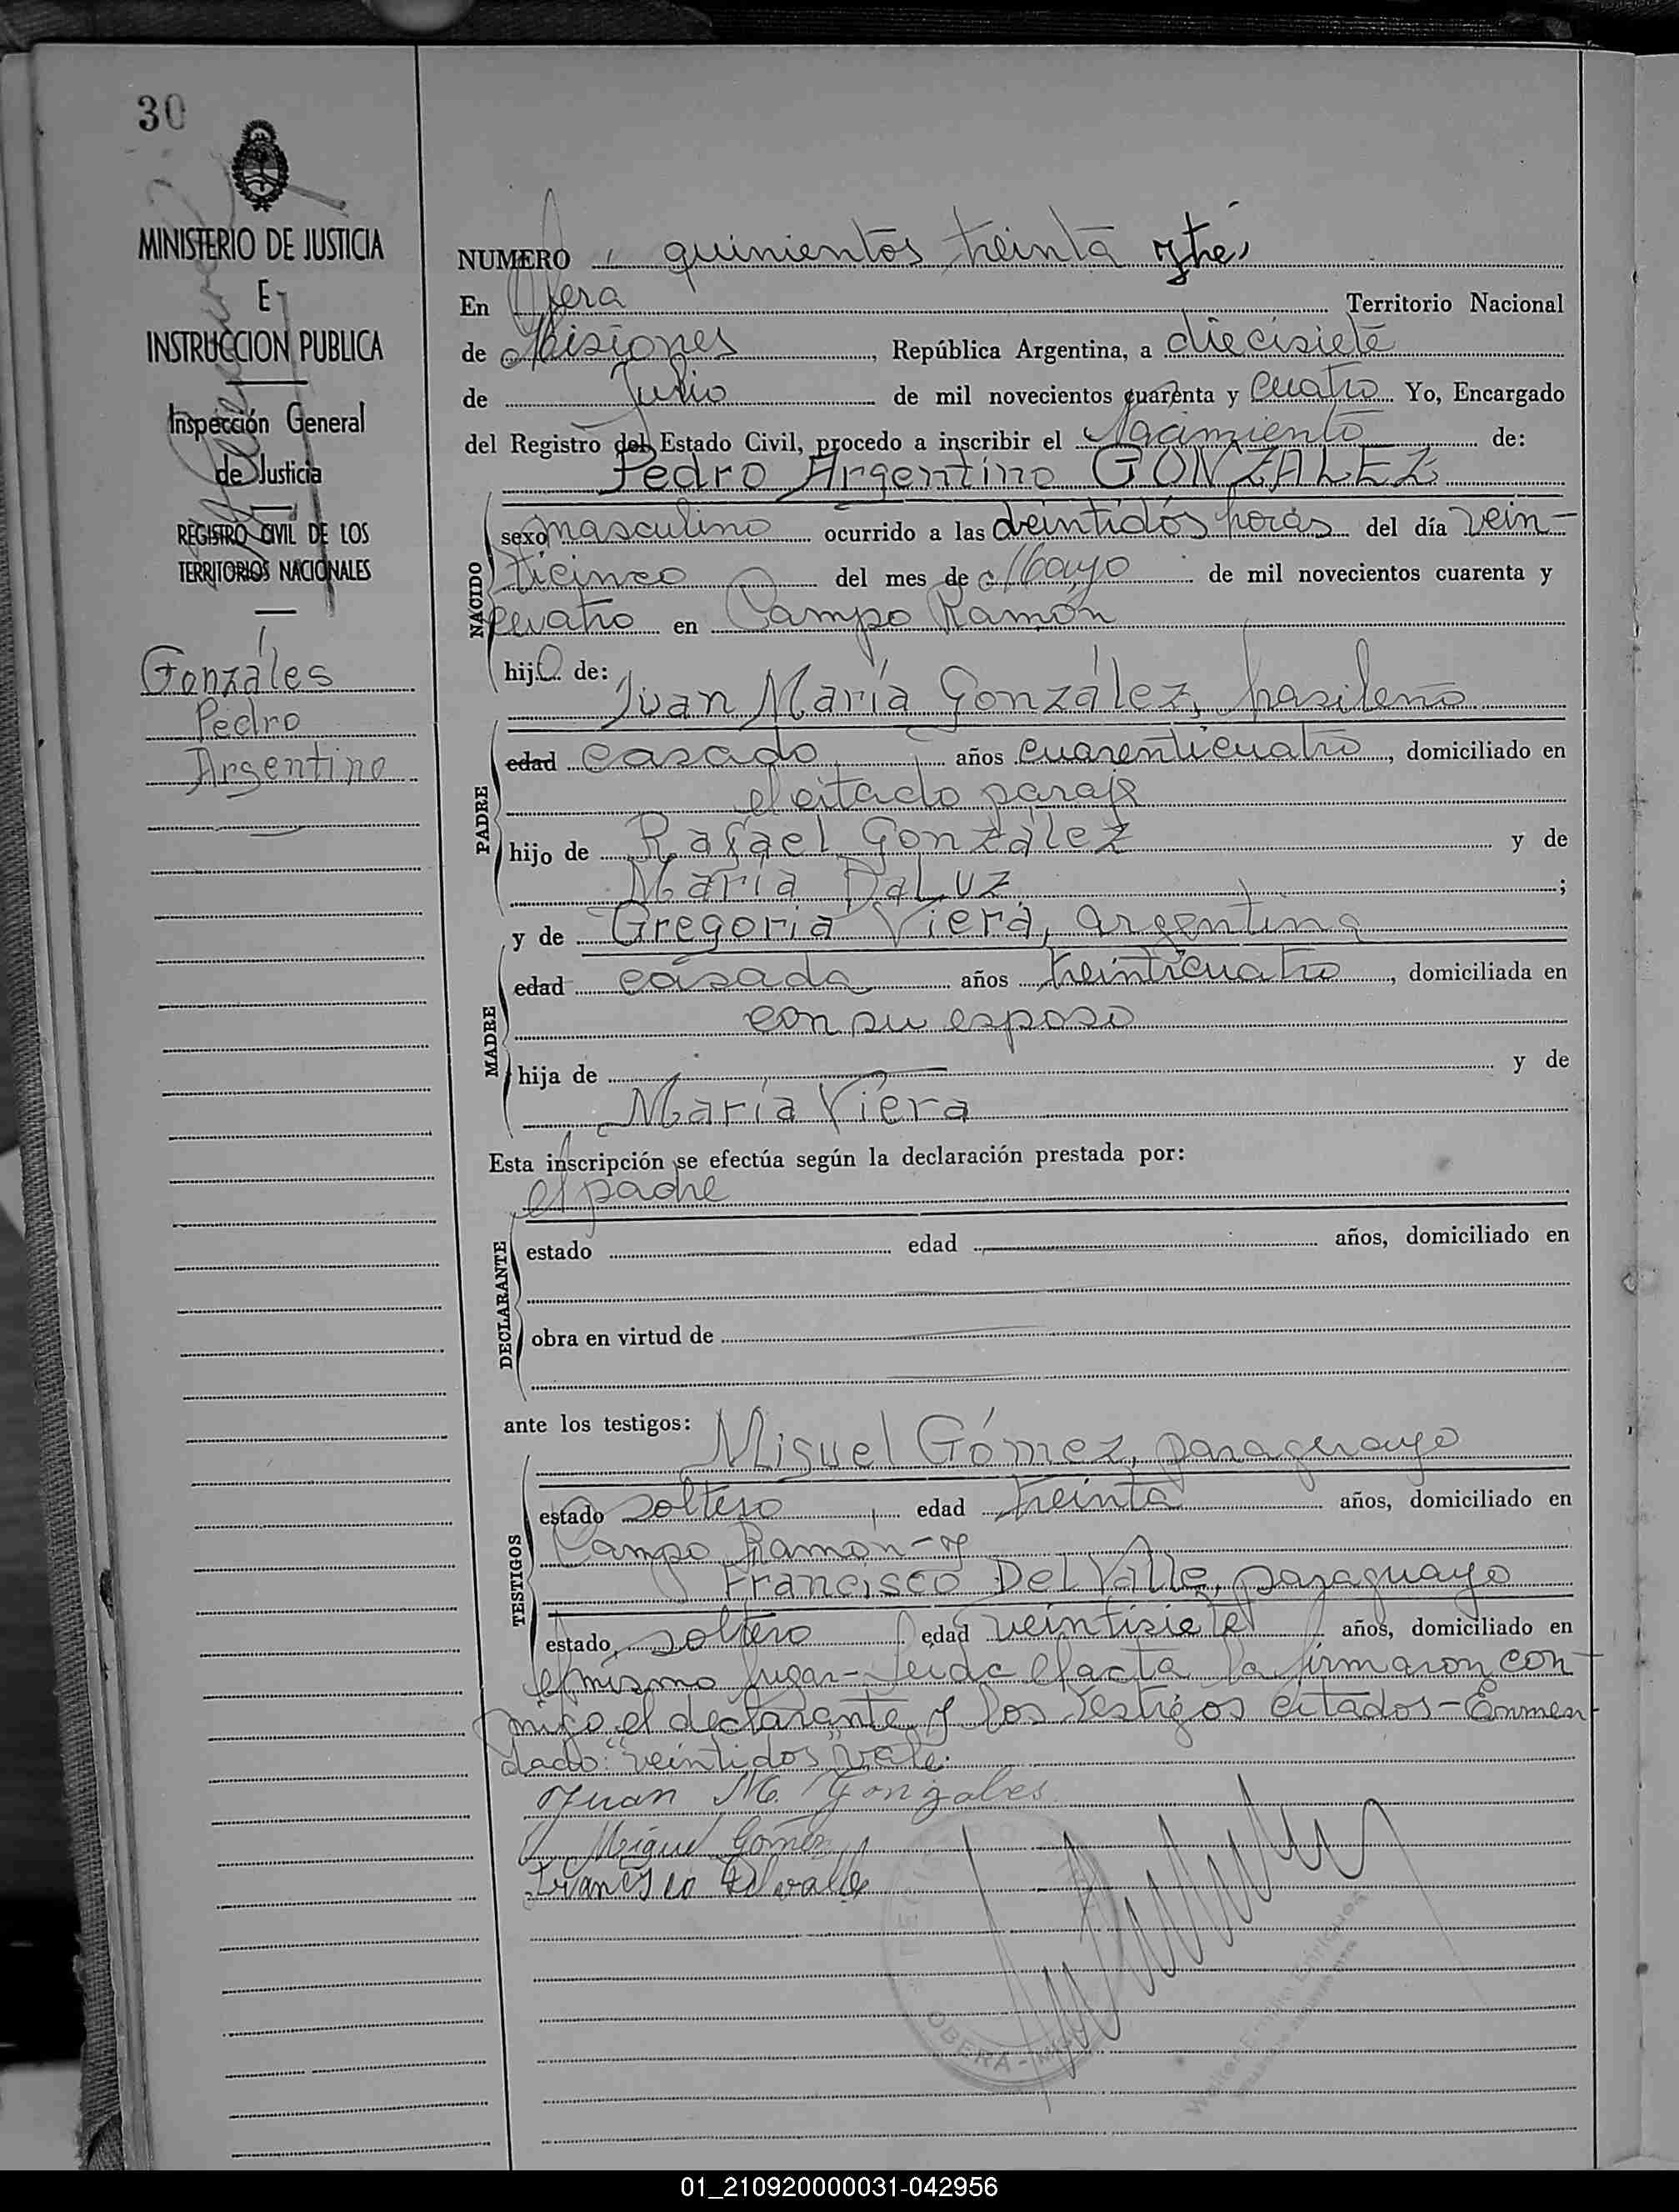 30
MINISTERIO DE JUSTICIA
E
INSTRUCCION PUBLICA
Inspección General
de Justicia
REGISTRO CIVIL DE LOS
TERRITORIOS NACIONALES
Gonzáles
Pedro
Argentino
NUMERO quinientos treinta y tres
En Obera Territorio Nacional
de Misiones, República Argentina, a diecisiete
de Julio de mil novecientos cuarenta y cuatro Yo, Encargado
del Registro del Estado Civil, procedo a inscribir el Nacimiento de:
Pedro Argentino GONZALEZ
NACIDO
sexo masculino ocurrido a las veintidós horas del día vein-
ticinco del mes de Mayo de mil novecientos cuarenta y
cuatro en Campo Ramón
hijo de:
Juan María González, brasileño
PADRE
edad casado años cuarenticuatro, domiciliado en
el citado paraje
hijo de Rafael González y de
María DaLuz ;
y de Gregoria Viera, argentina
MADRE
edad casada años treinticuatro, domiciliada en
con su esposo
hija de y de
María Viera
Esta inscripción se efectúa según la declaración prestada por:
el padre
DECLARANTE
estado edad años, domiciliado en
obra en virtud de
ante los testigos:
Miguel Gómez, paraguayo
TESTIGOS
estado soltero, edad treinta años, domiciliado en
Campo Ramón - y
Francisco Del Valle, paraguayo
estado, soltero edad veintisiete años, domiciliado en
el mismo lugar - Leida el acta la firmaron con
migo el declarante y los testigos citados - Enmen
dado: "veintidos" vale.
Juan M. Gonzales
Miguel Gomez
Francisco Delvalle
OBERA -
01_210920000031-042956